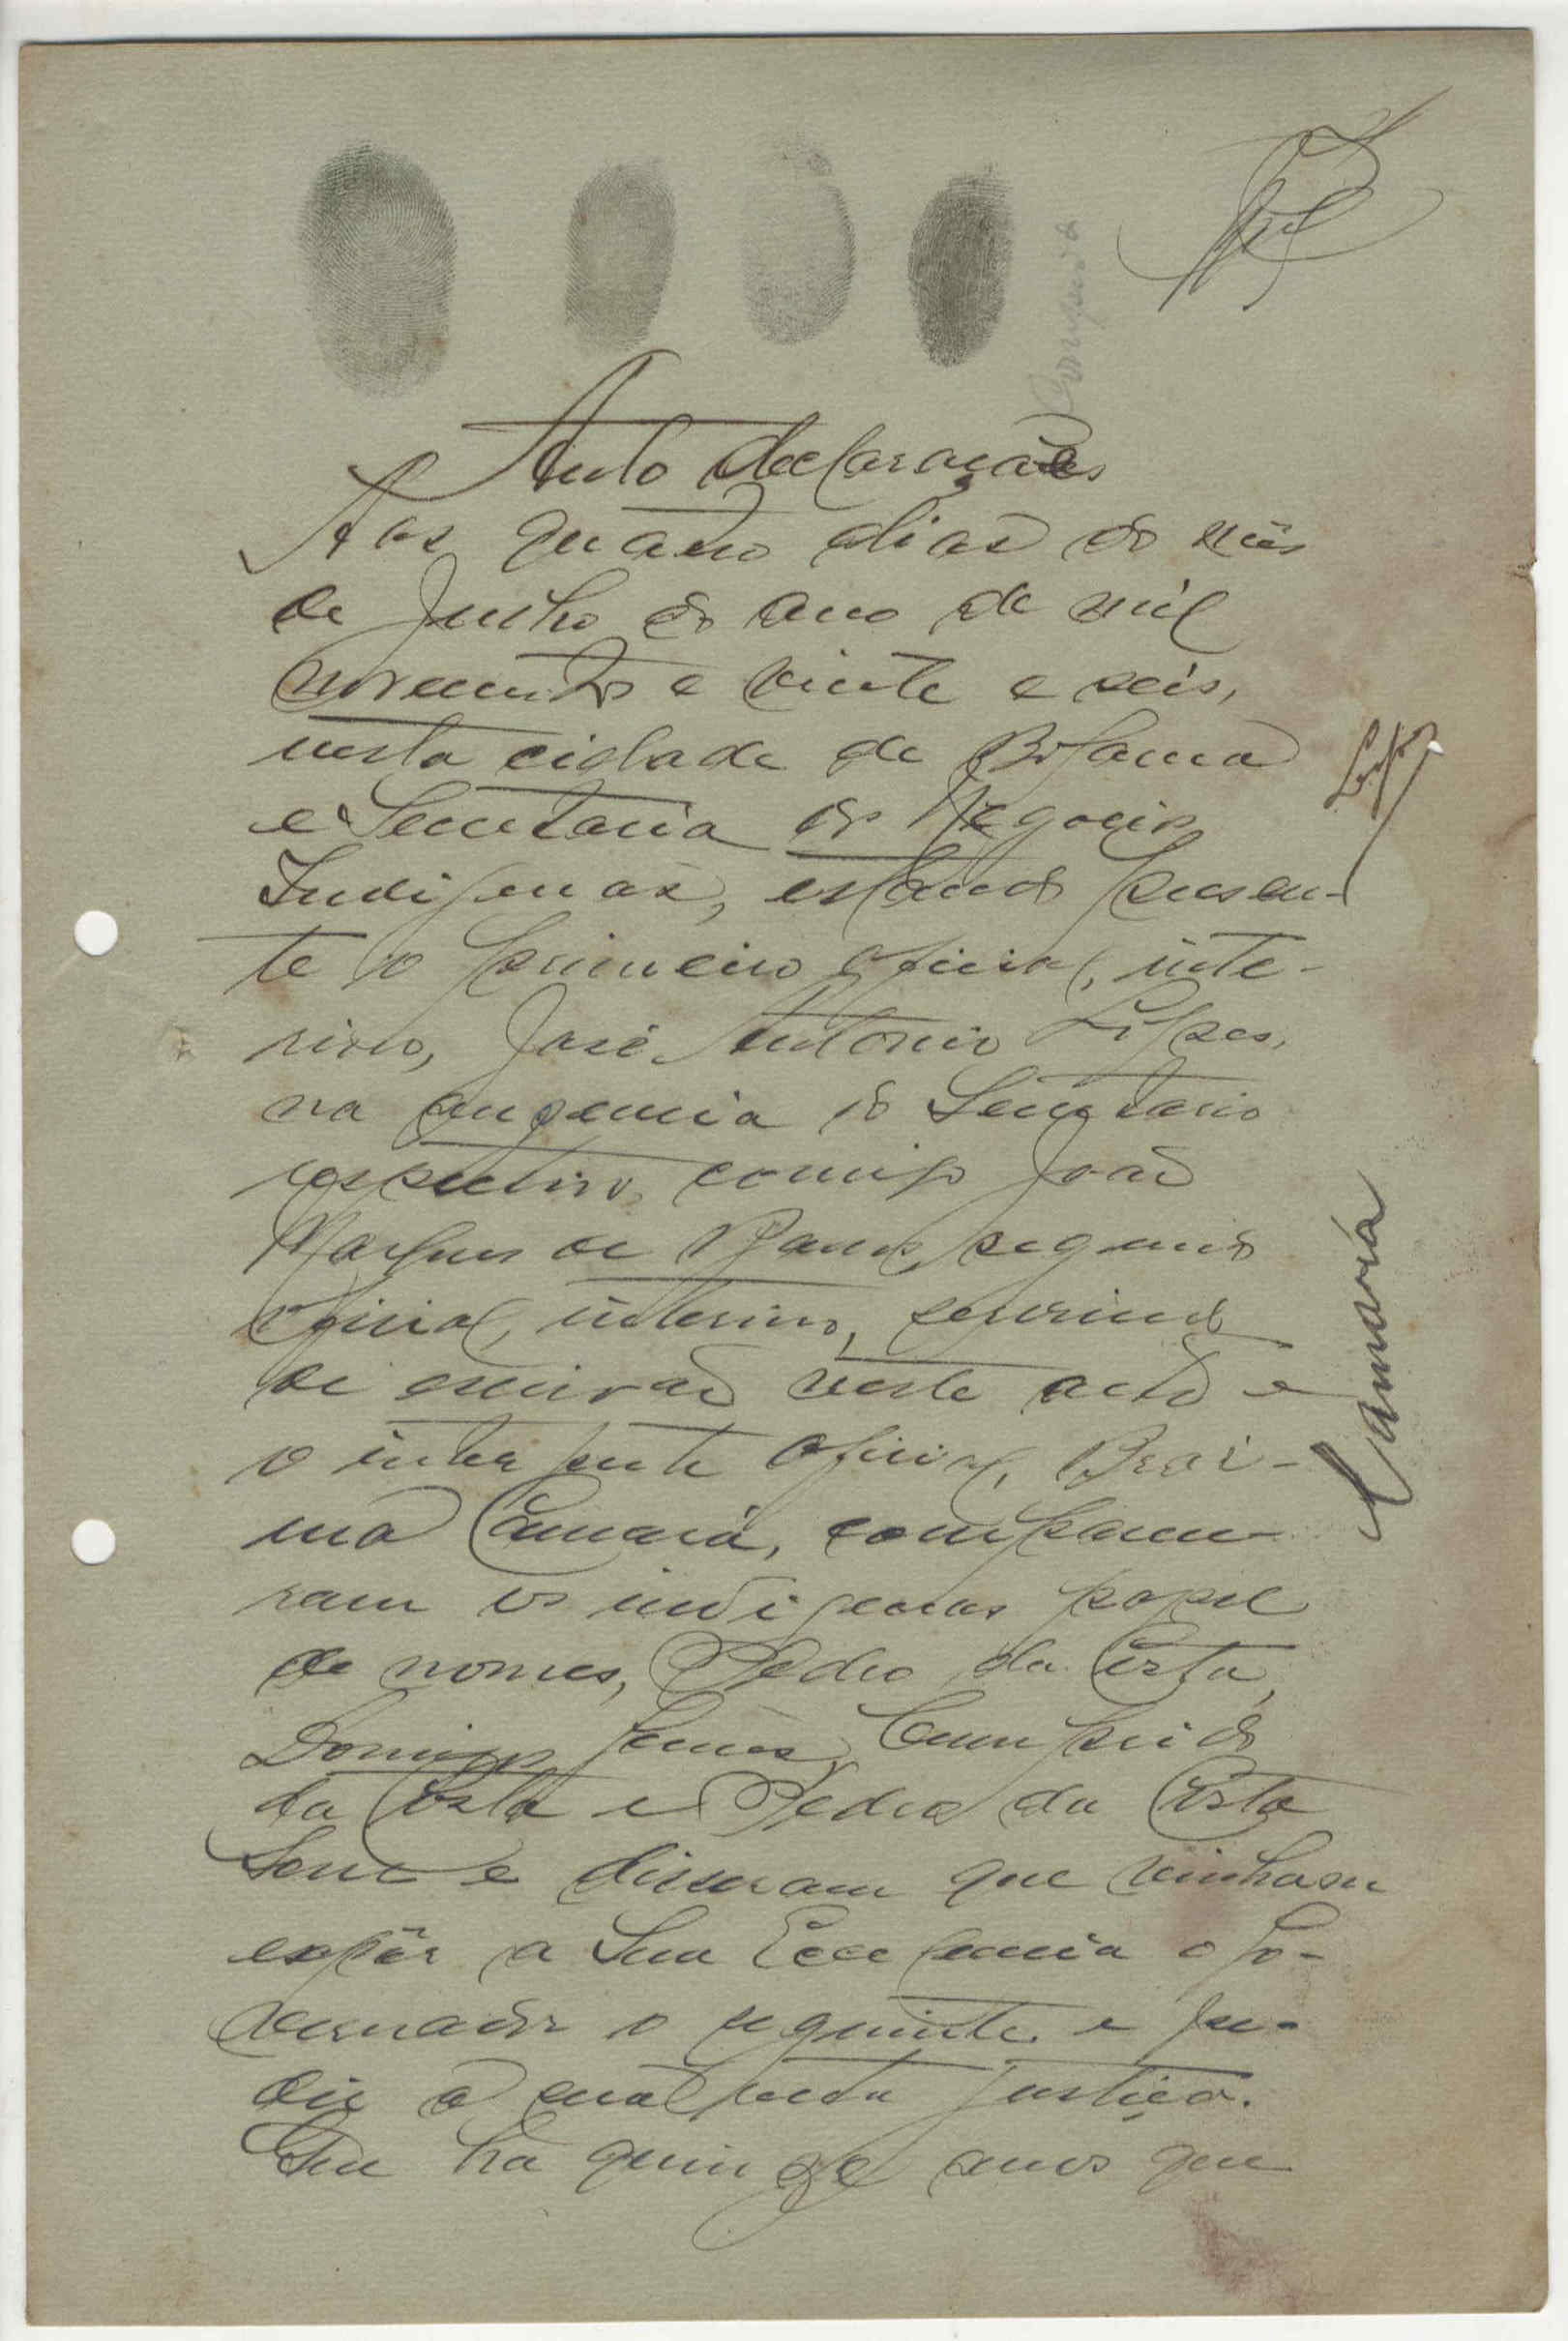 Auto declarações
Aos quatro dias do mês
de Junho do ano de mil
novecentos e vinte e seis,
nesta cidade de Bolama
e Secretaria dos Negocios
Indigenas, estando presen-
te o primeiro oficial, inte-
rino, José Antonio Lopes,
na ausencia do Secretario
respectivo, comigo João
Marques de Barros, segundo
oficial, interino, servindo
de escrivão neste acto e
o interprete oficial, Brai-
ma Camará, compare-
ram os indigenas papel
de nomes, Pedro da Costa,
Domingos Gomes, Cumprido
da Costa e Pedro da Costa
e disseram que vinham
expôr a Sua Excelencia o Go-
vernador o seguinte e pe-
dir a sua justiça.
ha quinze anos que
Camará